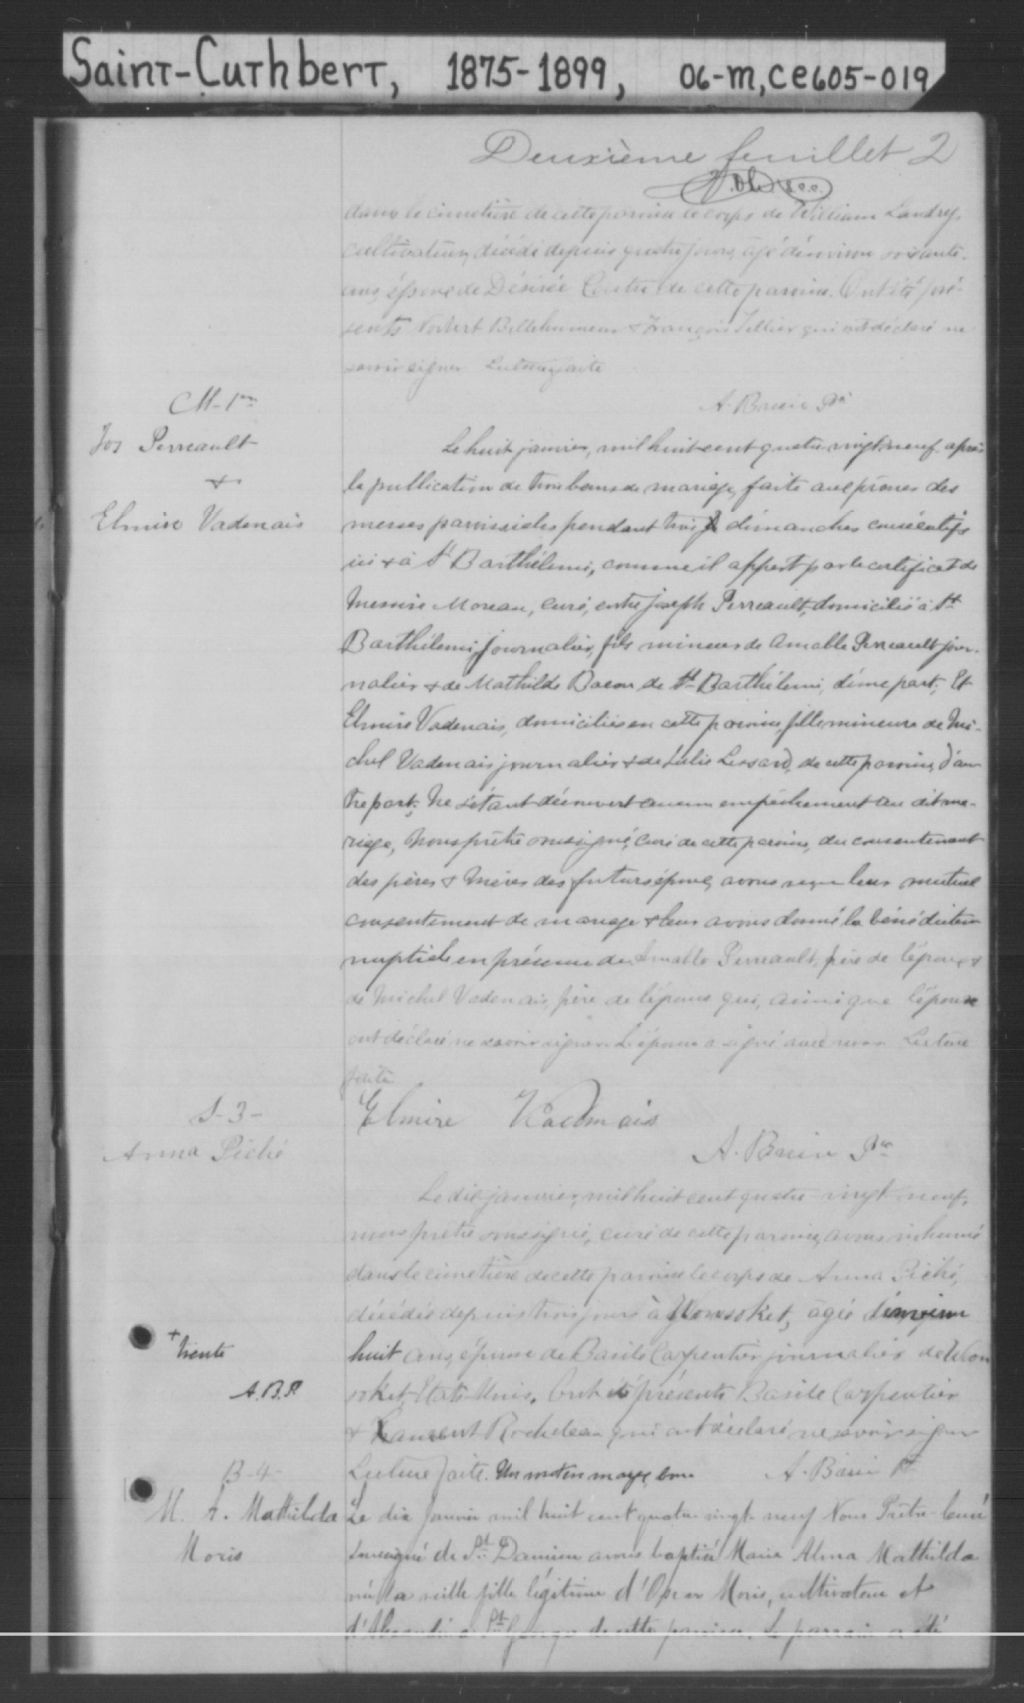 Saint-Cuthbert, 1875-1899, 06-m, ce605-019
Deuxième feuillet 2
dans le cimetière de cette paroisse le corps de William Landry,
cultivateur, décédé depuis quatre jours, âgé d'environ soixante
ans, époux de Désirée de cette paroisse. Ont été pré-
sents Norbert Bellehumeur & François Tellier qui ont déclaré ne
savoir signer Lecture faite
A. Ptre
M-1re
Jos Perreault
+
Elmire Vadenais
Le huit janvier, mil huit cent quatre vingt neuf après
la publication de trois bans de mariage, faite aux prônes des
messes paroissiales pendant trois dimanches consécutifs
ici & à St Barthélemi, comme il appert par le certificat de
Messire Moreau, curé, entre Joseph Perreault, domicilié à St
Barthélemi, journalier, fils mineur de Amable Perreault jour-
nalier & de Mathilde de St Barthélemi, d'une part; Et
Elmire Vadenais, domiciliée en cette paroisse, fille mineure de Mi-
chel Vadenais journalier & de Julie Lessard, de cette paroisse, d'au-
tre part; Ne s'étant découvert aucun empêchement au dit ma-
riage, Nous prêtre soussigné, curé de cette paroisse, du consentement
des pères & mères des futurs époux, avons reçu leur mutuel
consentement de mariage & leur avons donné la bénédiction
nuptiale en présence de Amable Perreault, père de l'époux &
de Michel Vadenais, père de l'épouse qui, ainsi que l'époux
ont déclaré ne savoir signer. L'épouse a signé avec nous. Lecture
faite
Elmire Vadenais
A. Ptre
S-3-
Anna Piché
Le dix janvier, mil huit cent quatre-vingt-neuf,
nous prêtre soussigné, curé de cette paroisse, avons inhumé
dans le cimetière de cette paroisse le corps de Anna Piché,
décédée depuis trois jours à Wonsoket, âgée d'environ
+ trente
huit ans, épouse de Basile Carpentier journalier de Won
A.B.P.
soket, Etats Unis. Ont été présents Basile Carpentier
& Rocheleau qui ont déclaré ne savoir signer
Lecture faite. Un mot en marge bon A. Ptre
B-4-
M. A. Mathilda
Moris
Le dix Janvier mil huit cent quatre vingt-neuf Nous Prêtre Curé
soussigné de St Damien avons baptisé Marie Alma Mathilda
née la veille fille légitime d'Oscar Moris, cultivateur et
St George de cette paroisse. Le parrain a été